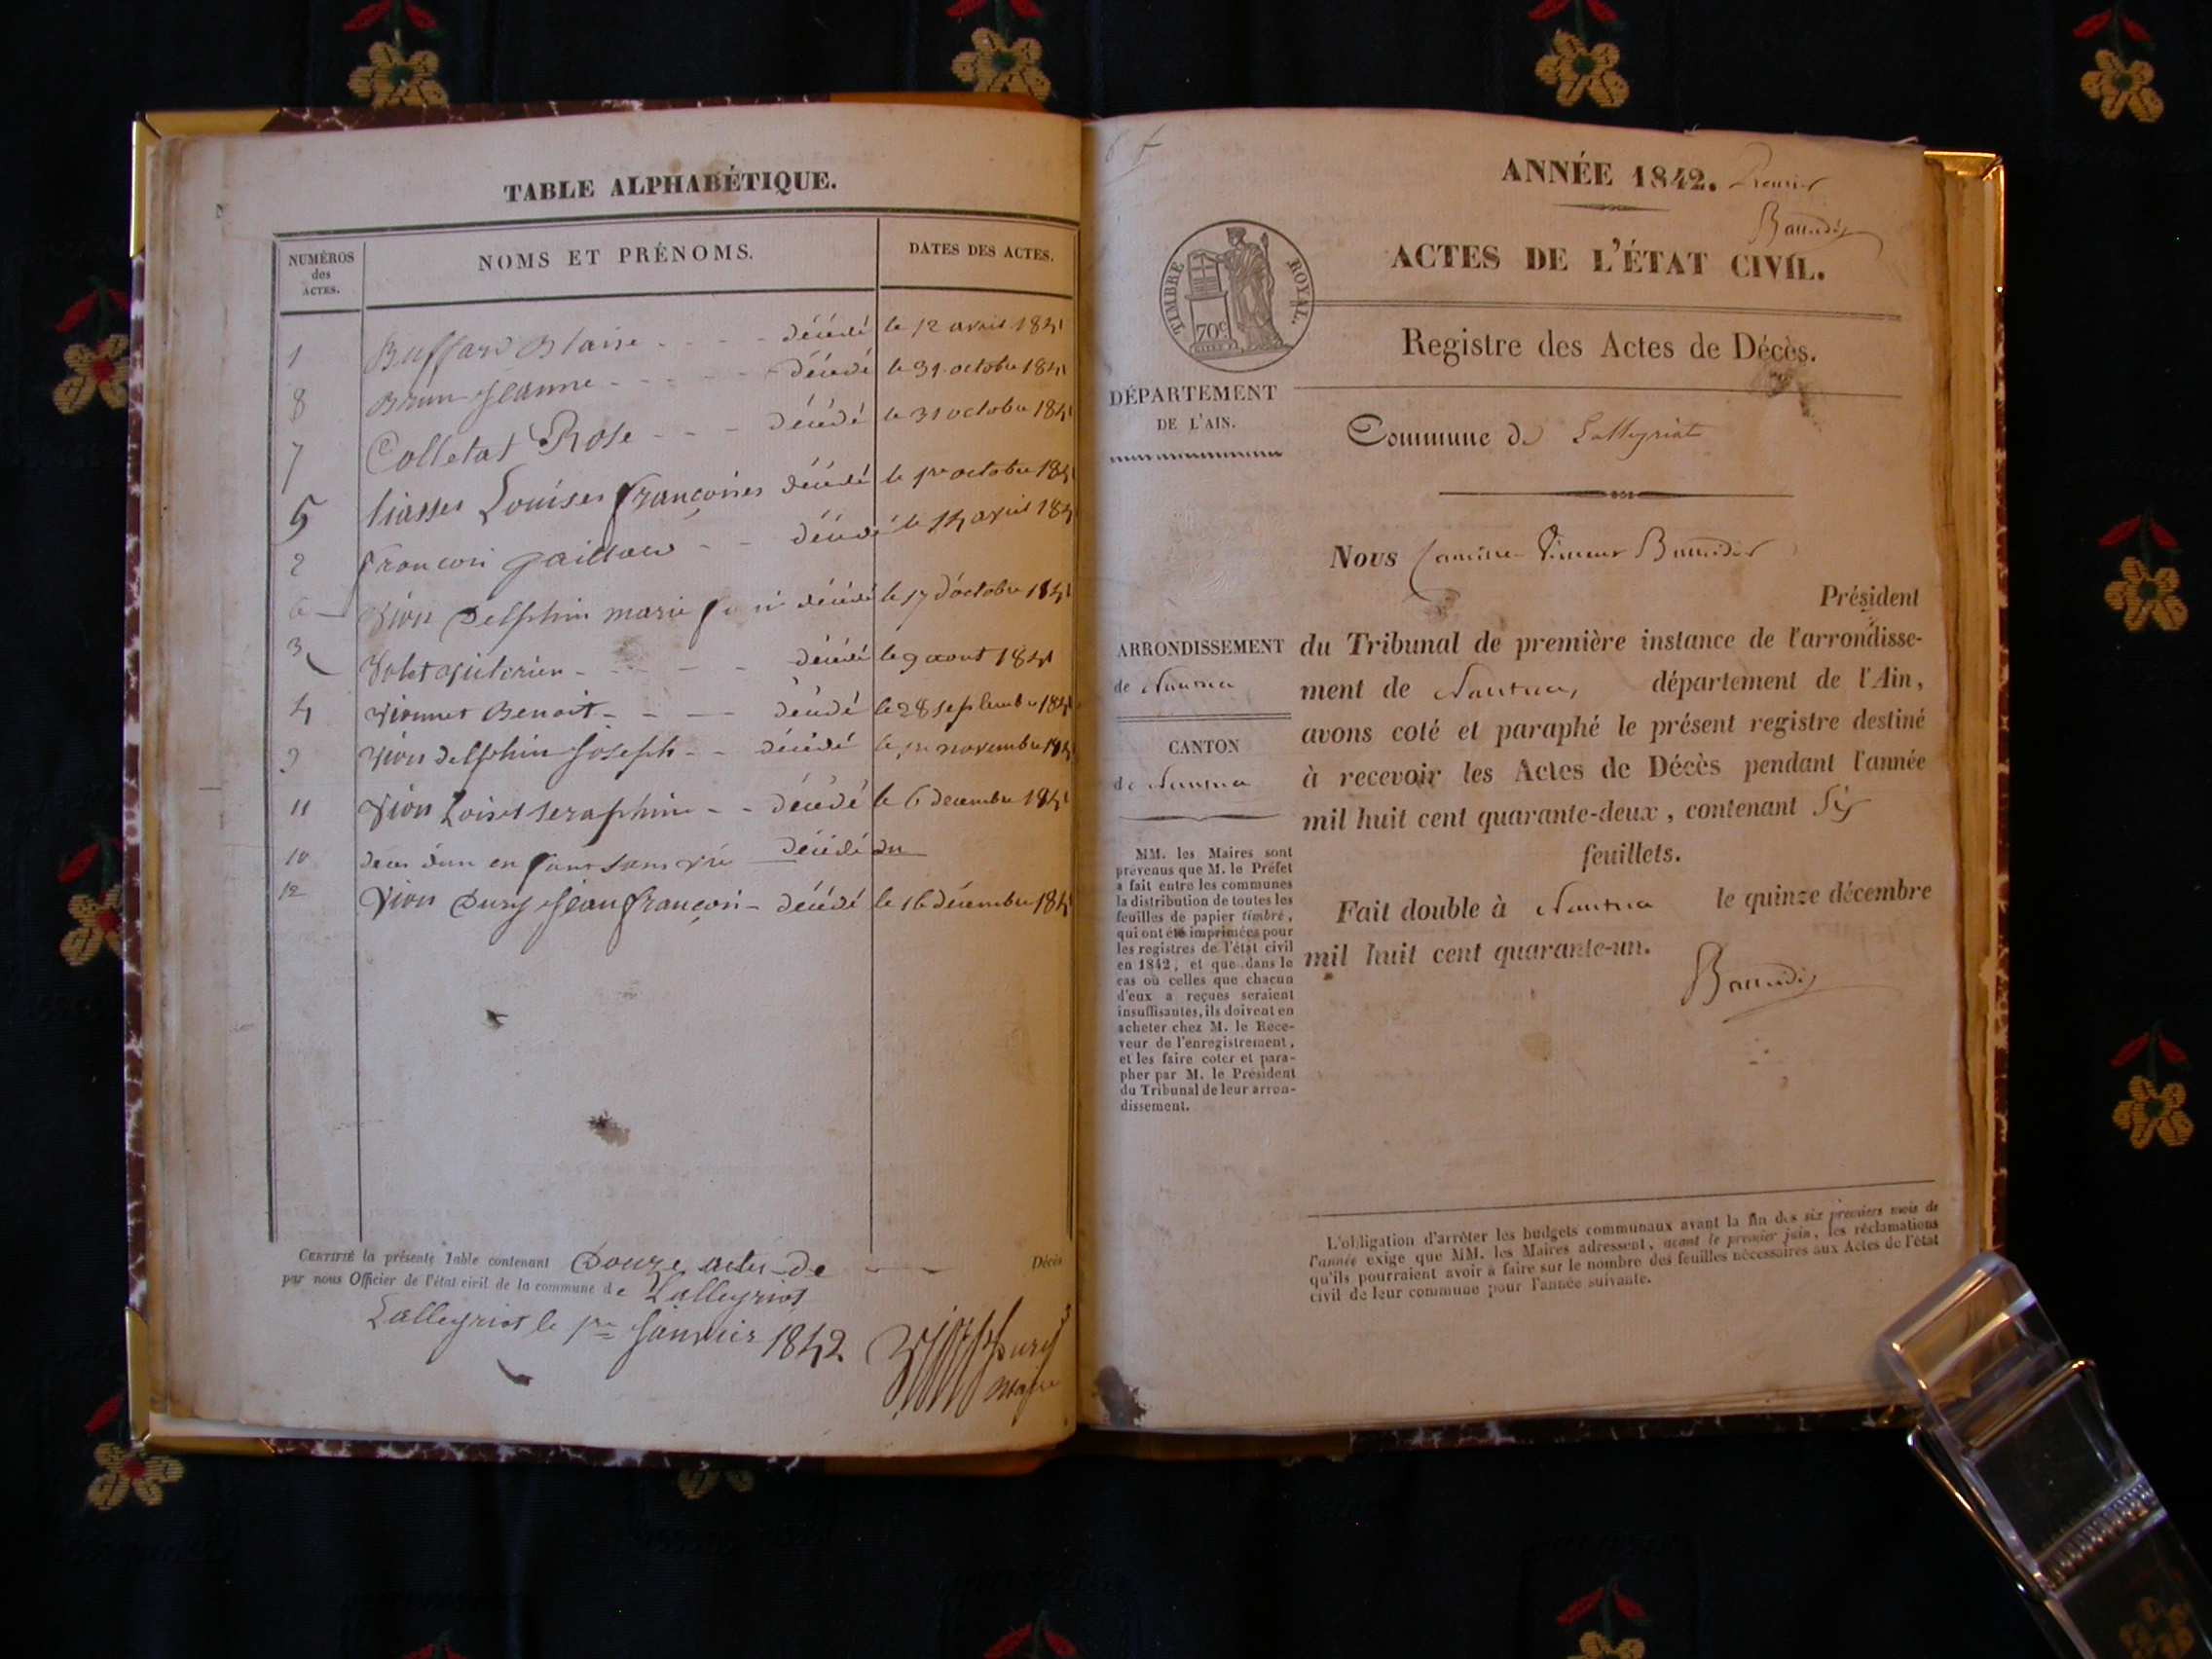 TABLE ALPHABÉTIQUE.
NUMÉROS
des
ACTES.
NOMS ET PRÉNOMS.
DATES DES ACTES.
1 Buffard Blaise décédé le 12 avril 1841
8 Brun Jeanne décédé le 31 octobre 1841
7 Colletat Rose décédé le 31 octobre 1841
5 Louise françoise décédé le 1er octobre 1841
2 françois décédé le 14 avril 1841
6 Vion Delphin marie décédé le 17 d'octobre 1841
3 décédé le 9 aout 1841
4 Vionnet Benoit décédé le 28 septembre 1841
9 Vion delphin Joseph décédé le novembre 1841
11 Vion seraphin décédé le 6 decembre 1841
10 enfant sans vie décédé du
12 Vion Dury Jean françois décédé le 16 décembre 1841
CERTIFIÉ la présente Table contenant Douze actes de Décès
par nous Officier de l'état civil de la commune de Lalleyriat
Lalleyriat le 1er Janvier 1842
maire
ANNÉE 1842. Premier
ACTES DE L'ÉTAT CIVIL.
TIMBRE ROYAL.
70c
Registre des Actes de Décès.
DÉPARTEMENT
DE L'AIN.
Commune de Lalleyriat
Nous
Président
ARRONDISSEMENT
de Nantua
CANTON
de Nantua
du Tribunal de première instance de l'arrondisse-
ment de Nantua, département de l'Ain,
avons coté et paraphé le présent registre destiné
à recevoir les Actes de Décès pendant l'année
mil huit cent quarante-deux, contenant Six
feuillets.
Fait double à Nantua le quinze décembre
mil huit cent quarante-un.
MM. les Maires sont
prévenus que M. le Préfet
a fait entre les communes
la distribution de toutes les
feuilles de papier timbré,
qui ont été imprimées pour
les registres de l'état civil
en 1842, et que dans le
cas où celles que chacun
d'eux a reçues seraient
insuffisantes, ils doivent en
acheter chez M. le Rece-
veur de l'enregistrement,
et les faire coter et para-
pher par M. le Président
du Tribunal de leur arron-
dissement.
L'obligation d'arrêter les budgets communaux avant la fin des six premiers mois de
l'année exige que MM. les Maires adressent, avant le premier juin, les réclamations
qu'ils pourraient avoir à faire sur le nombre des feuilles nécessaires aux Actes de l'état
civil de leur commune pour l'année suivante.